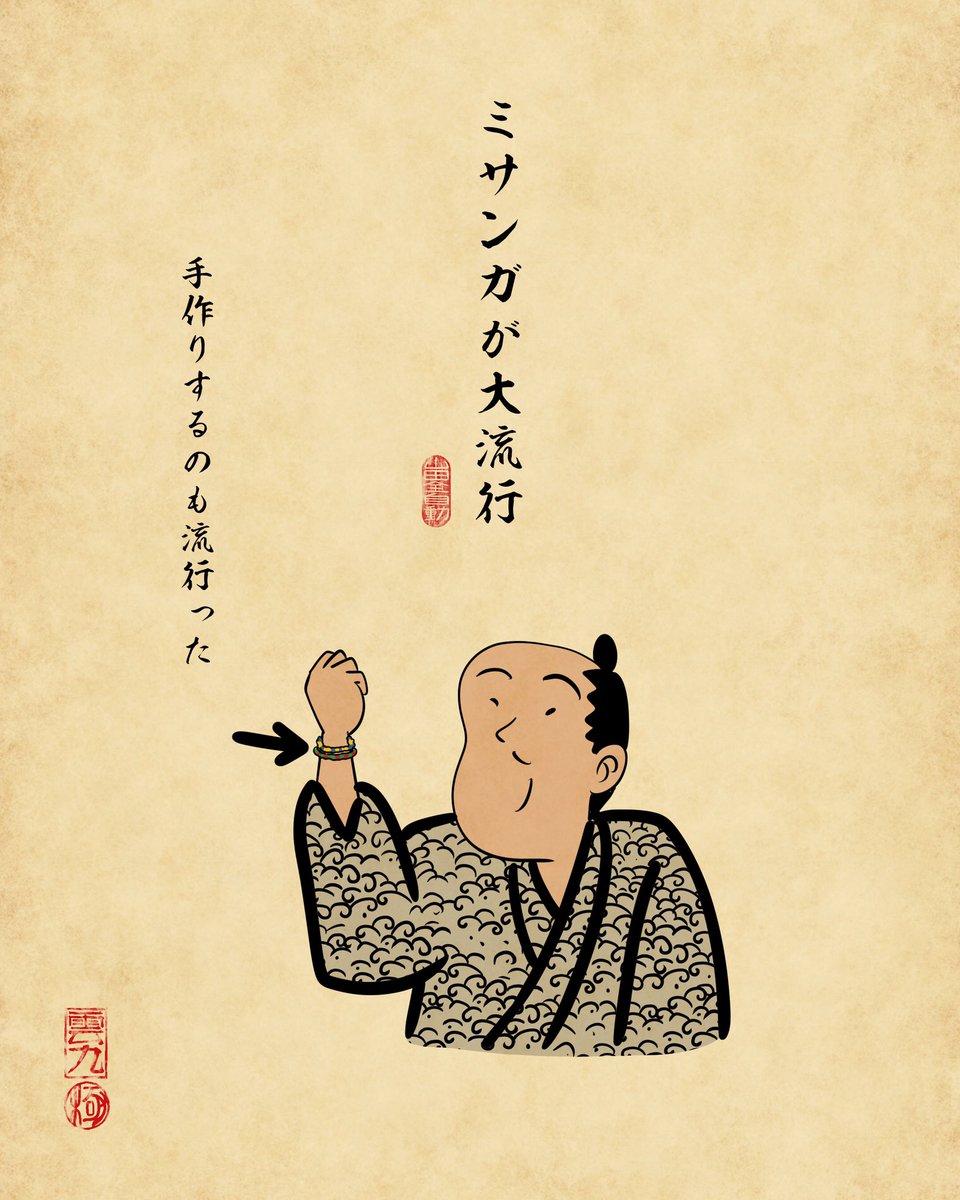 ミサンガが大流行
手作りするのも流行った